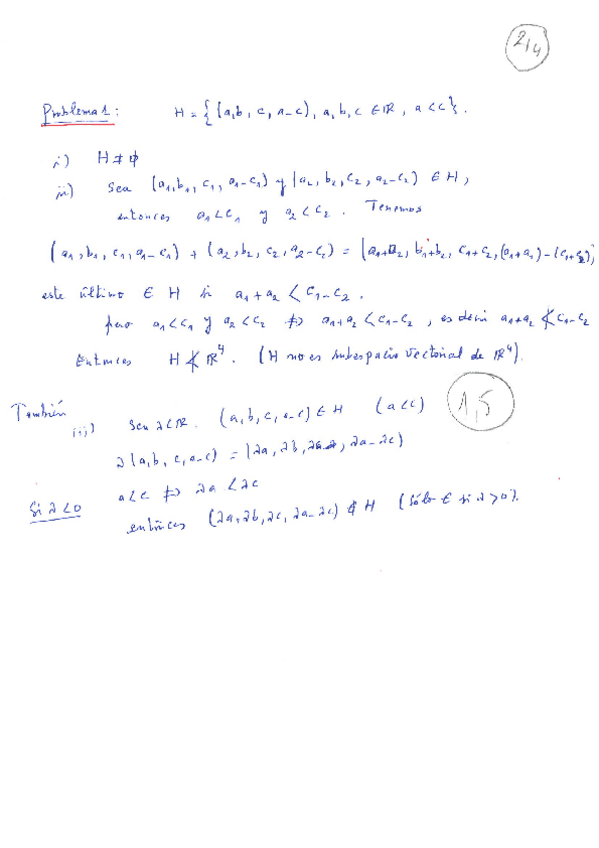 2,4
Problema 1: H = {(a,b, c, a-c), a,b,c ∈ ℝ, a<c}.
i) H ≠ ∅
ii) Sea (a₁,b₁, c₁, a₁-c₁) y (a₂, b₂, c₂, a₂-c₂) ∈ H,
entonces a₁<c₁ y a₂<c₂. Tenemos
(a₁, b₁, c₁, a₁-c₁) + (a₂, b₂, c₂, a₂-c₂) = (a₁+a₂, b₁+b₂, c₁+c₂, (a₁+a₁)-(c₁+c₂))
este último ∈ H si a₁+a₂ < c₁-c₂.
pero a₁<c₁ y a₂<c₂ ⇏ a₁+a₂<c₁-c₂, es decir a₁+a₂ ≮ c₁-c₂
Entonces H ≮ ℝ⁴. (H no es subespacio vectorial de ℝ⁴).
También
iii) Sea λ∈ℝ. (a,b,c,a-c) ∈ H (a<c)
1,5
λ(a,b,c,a-c) = (λa, λb, λa-λc)
Si λ<0 a<c ⇏ λa < λc
entonces (λa, λb, λc, λa-λc) ∉ H (sólo ∈ si λ>0).